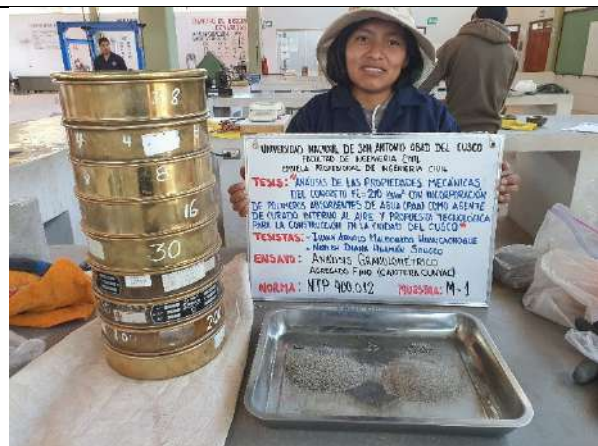 UNIVERSIDAD NACIONAL DE SAN ANTONIO ABAD DEL CUSCO
FACULTAD DE INGENIERIA CIVIL
ESCUELA PROFESIONAL DE INGENIERIA CIVIL
TESIS: "ANÁLISIS DE LAS PROPIEDADES MECÁNICAS
DEL CONCRETO F'C=210 CON INCORPORACIÓN
DE POLIMEROS ABSORBENTES DE AGUA (PAA) COMO AGENTE
DE CURADO INTERNO AL AIRE Y PROPUESTA TECNOLÓGICA
PARA LA CONSTRUCCION EN LA CIUDAD DEL CUSCO"
TESISTAS: - MALDONADO
DIANA HUAMÁN
ENSAYO: ANÁLISIS GRANULOMÉTRICO
AGREGADO FINO (CANTERA CUNYAC)
NORMA: NTP 400.012 MUESTRA: M-1
3/8
4 4
8
16
30
100 200